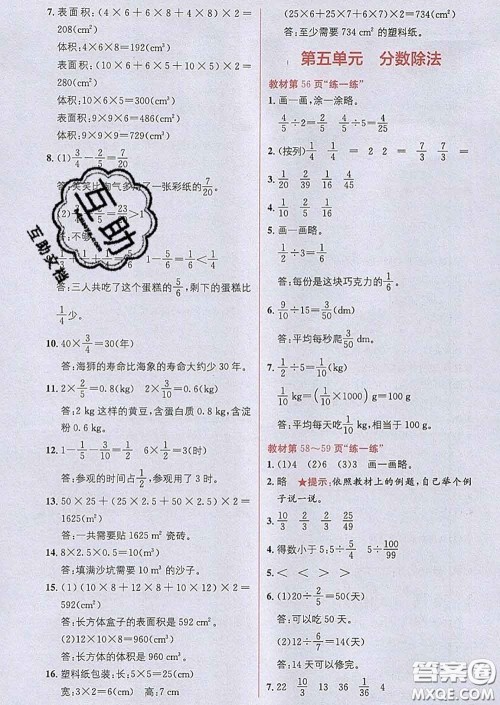 7. 表面积:(4×6+6×8+4×8)×2=
208(cm²)
体积:4×6×8=192(cm³)
表面积:(6×10+6×5+10×5)×2=
280(cm²)
体积:10×6×5=300(cm³)
表面积:9×9×6=486(cm²)
体积:9×9×9=729(cm³)
8. (1)3/4-2/5=7/20
答:笑笑比淘气多用了一张彩纸的7/20。
>1
答:不够
1-5/6=1/6<1/4
答:三人共吃了这个蛋糕的5/6,剩下的蛋糕比
1/4少。
10. 40×3/4=30(年)
答:海狮的寿命比海象的寿命大约少30年。
11. 2×2/5=0.8(kg) 2×3/10=0.6(kg)
答:2 kg这样的黄豆,含蛋白质0.8 kg,含淀
粉0.6 kg。
12. 1-1/3-1/6=1/2 6×1/2=3(时)
答:参观的时间占1/2,参观用了3时。
13. 50×25+(25×2.5+50×2.5)×2=
1625(m²)
答:一共需要贴1625 m²瓷砖。
14. 8×2.5×0.5=10(m³)
答:填满沙坑需要10 m³的沙子。
15. (1)(10×8+12×8+10×12)×2=
592(cm²)
答:长方体盒子的表面积是592 cm²。
(2)12×10×8=960(cm³)
答:长方体的体积是960 cm³。
16. 塑料纸包装:长:5×5=25(cm)
宽:3×2=6(cm) 高:7 cm
(25×6+25×7+6×7)×2=734(cm²)
答:至少需要734 cm²的塑料纸。
第五单元 分数除法
教材第56页“练一练”
1. 画一画,涂一涂略。
4/5÷2=2/5 4/5÷3=4/15
2. (按列)1/4 1/4 = 2 2 = 7/3 7/3 =
3. 1/20 4/39 4/35 4/45
4. 1/4 1/9 2/15 1/10
5. 画一画略。
1/2÷3=1/6
答:每份是这块巧克力的1/6。
6. 9/10÷15=3/50(dm)
答:平均每秒爬3/50 dm。
7. 1/2÷5=1/10(kg)
1/10 kg=(1/10×1000) g=100 g
答:平均每天吃1/10 kg,合100 g。
教材第58~59页“练一练”
1. (1)4 (2)6 (3)3 画一画略。
2. 略 ★提示:依照教材上的例题,自己举个例
子说一说。
3. 10/3 2/9 3/4 3/2
4. 得数小于5:5÷5/4 5÷100/99
5. < > < >
6. (1)20÷2/5=50(天)
答:可以吃50天。
(2)12÷6/7=14(天)
答:14天可以修完。
互助
互助文档
答案圈
MXQE.COM